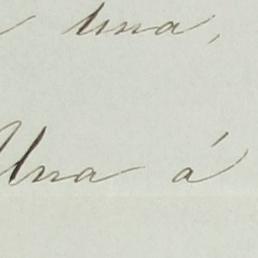 una,
Una á